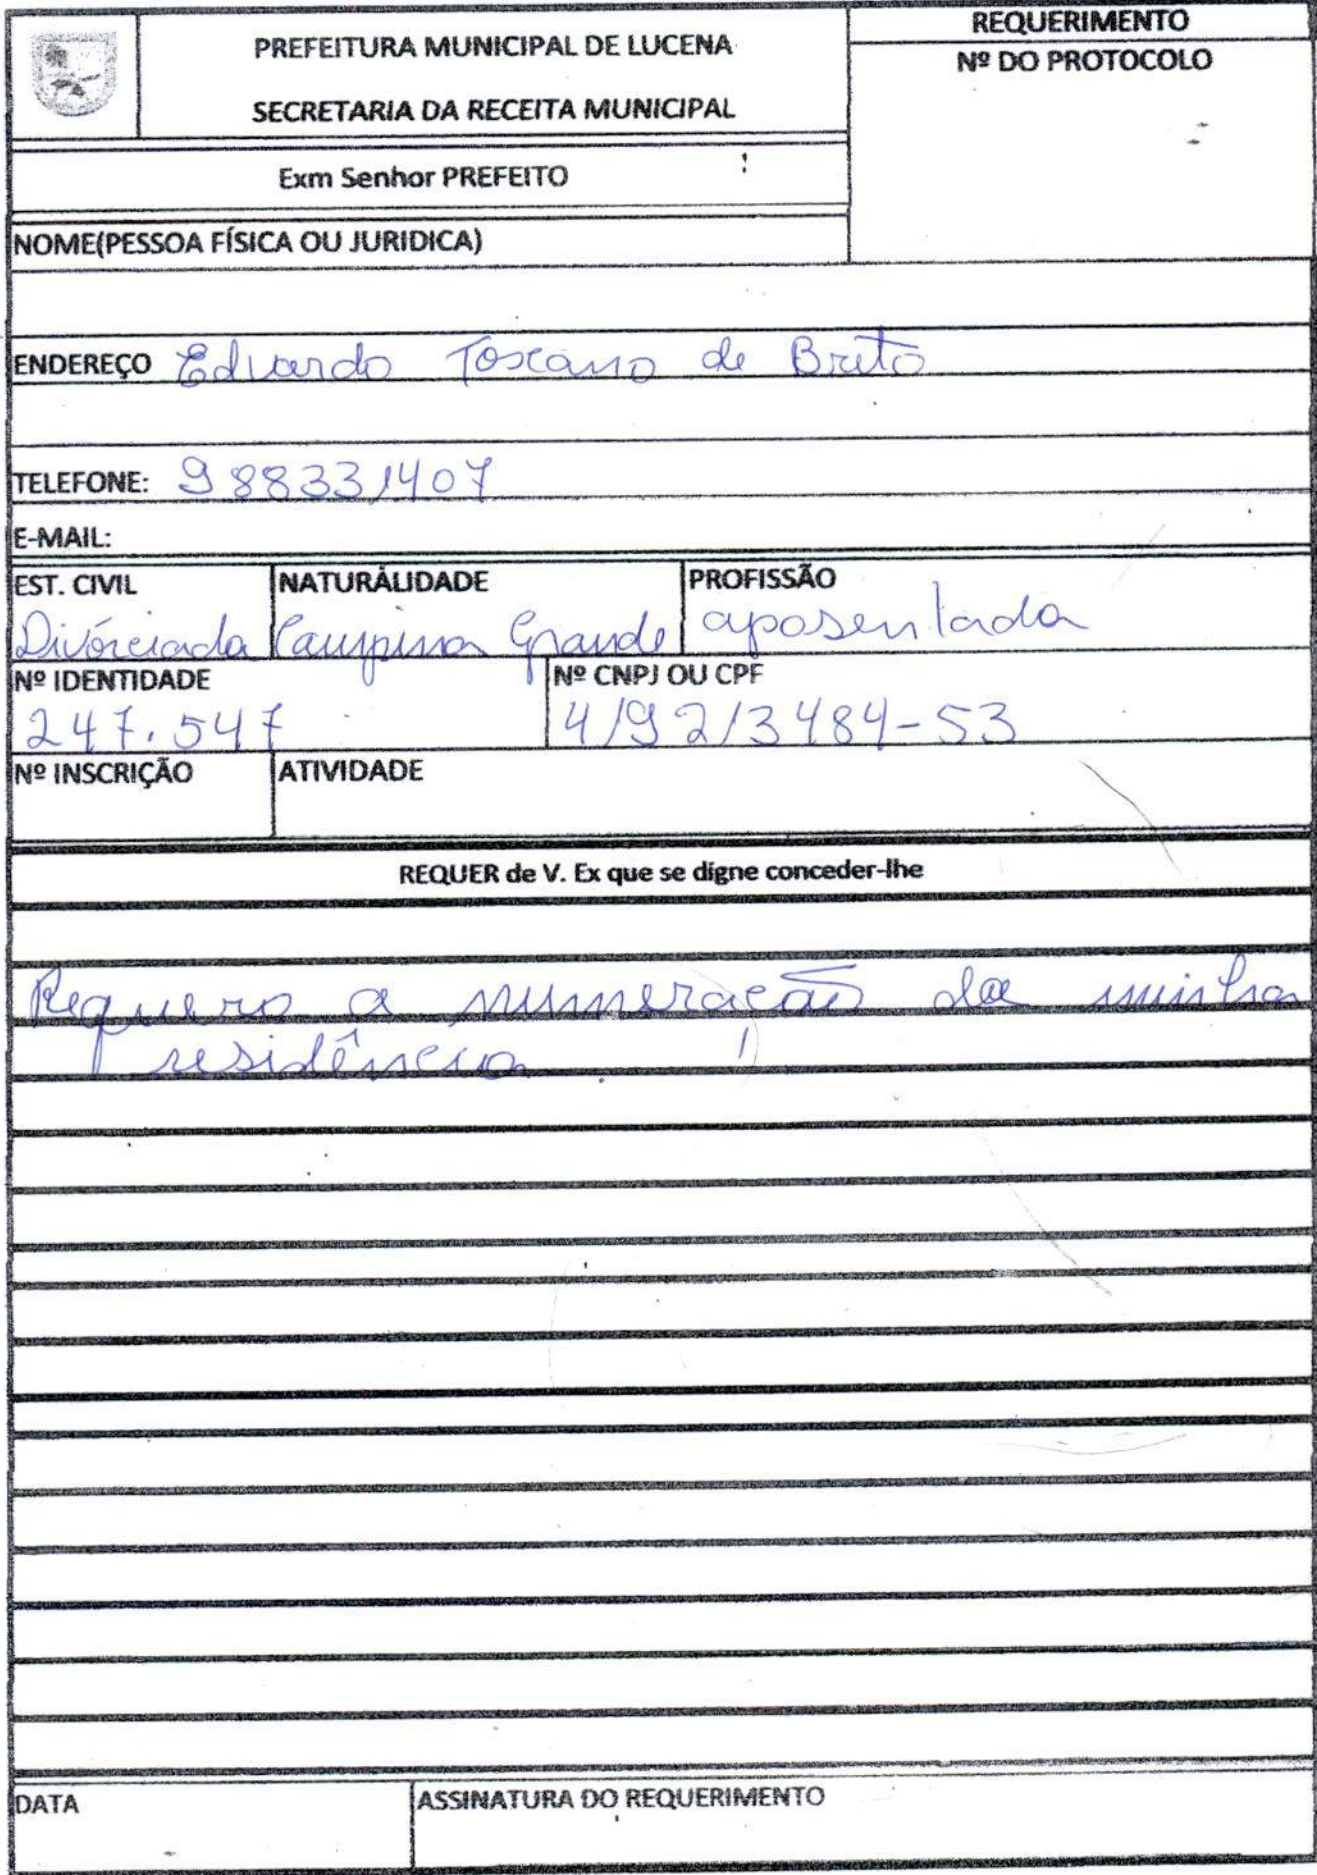 PREFEITURA MUNICIPAL DE LUCENA
SECRETARIA DA RECEITA MUNICIPAL
REQUERIMENTO
Nº DO PROTOCOLO
Exm Senhor PREFEITO
NOME(PESSOA FÍSICA OU JURIDICA)
ENDEREÇO Eduardo Toscano de Brito
TELEFONE: 988331407
E-MAIL:
EST. CIVIL NATURALIDADE PROFISSÃO
Divórciada Campina Grande aposentada
Nº IDENTIDADE Nº CNPJ OU CPF
247.547 419213484-53
Nº INSCRIÇÃO ATIVIDADE
REQUER de V. Ex que se digne conceder-lhe
Requero a numeração da minha
residência !
DATA ASSINATURA DO REQUERIMENTO